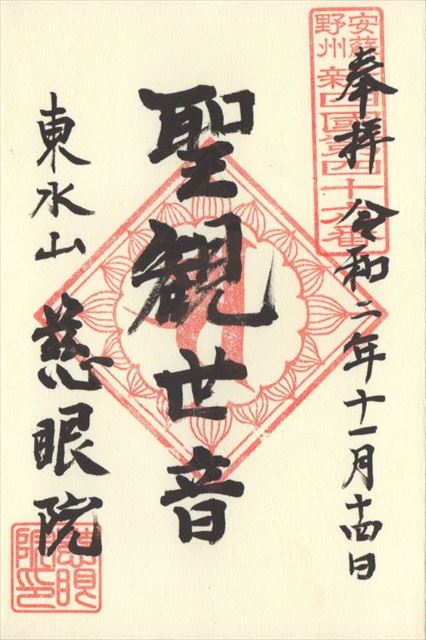 奉拝 令和二年十一月十四日
野州
安蘇
新四國第四十六番
聖観世音
東水山 慈眼院
慈眼院印